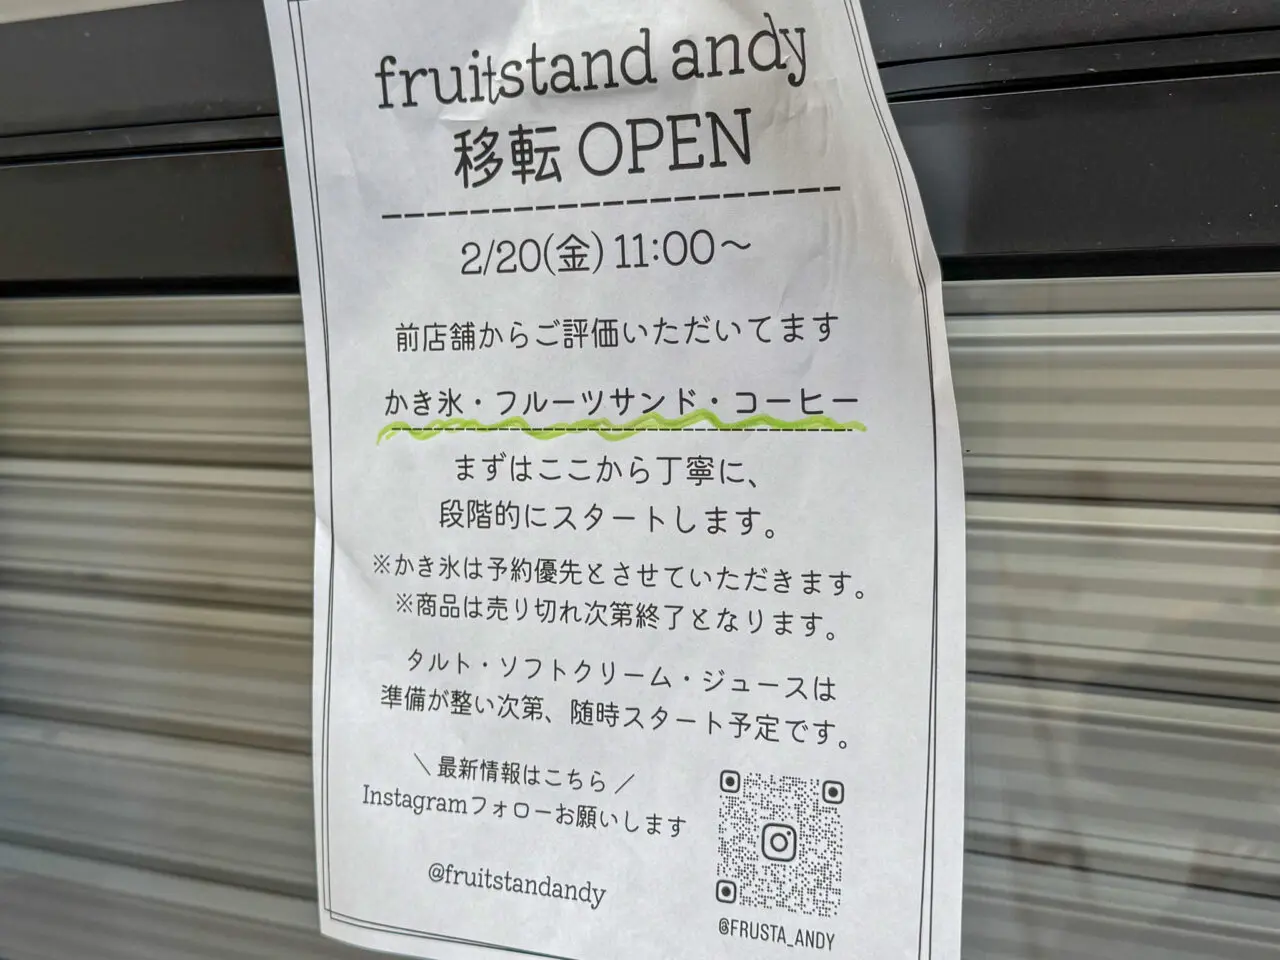 fruitstand andy
移転 OPEN
2/20(金) 11:00～
前店舗からご評価いただいてます
かき氷・フルーツサンド・コーヒー
まずはここから丁寧に、
段階的にスタートします。
※かき氷は予約優先とさせていただきます。
※商品は売り切れ次第終了となります。
タルト・ソフトクリーム・ジュースは
準備が整い次第、随時スタート予定です。
＼ 最新情報はこちら ／
Instagramフォローお願いします
@fruitstandandy
@FRUSTA_ANDY